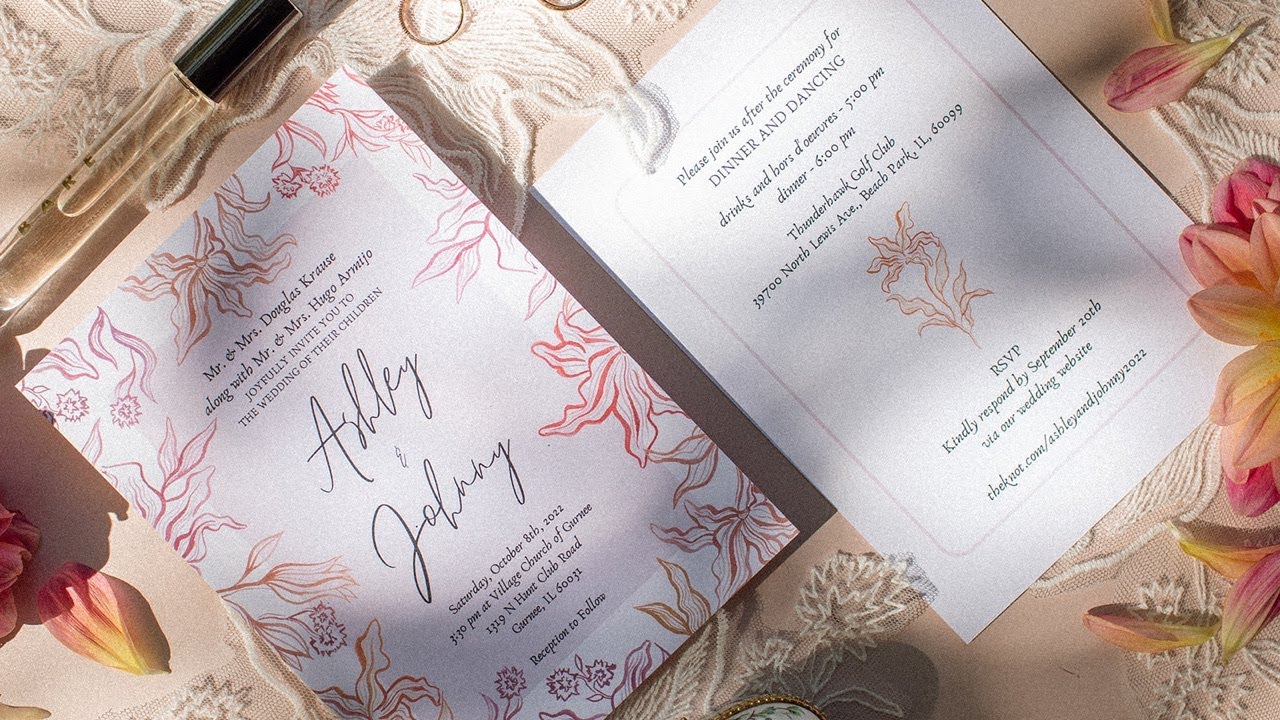 Mr. & Mrs. Douglas Krause
along with Mr. & Mrs. Hugo Armijo
JOYFULLY INVITE YOU TO
THE WEDDING OF THEIR CHILDREN
Ashley
&
Johnny
Saturday, October 8th, 2022
3:30 pm at Village Church of Gurnee
1319 N Hunt Club Road
Gurnee, IL 60031
Reception to Follow
Please join us after the ceremony for
DINNER AND DANCING
drinks and hors d'oeuvres - 5:00 pm
dinner - 6:00 pm
Thunderhawk Golf Club
39700 North Lewis Ave., Beach Park, IL, 60099
RSVP
Kindly respond by September 20th
via our wedding website
theknot.com/ashleyandjohnny2022